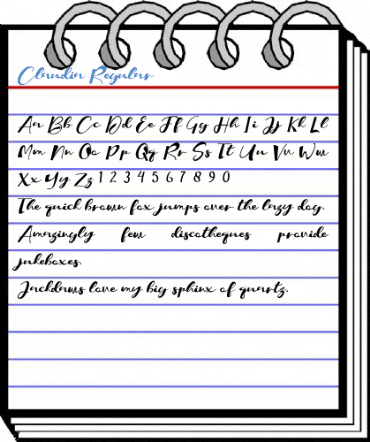 Claudia Regular
Aa Bb Cc Dd Ee Ff Gg Hh Ii Jj Kk Ll
Mm Nn Oo Pp Qq Rr Ss Tt Uu Vv Ww
Xx Yy Zz 1 2 3 4 5 6 7 8 9 0
The quick brown fox jumps over the lazy dog.
Amazingly few discotheques provide
jukeboxes.
Jackdaws love my big sphinx of quartz.